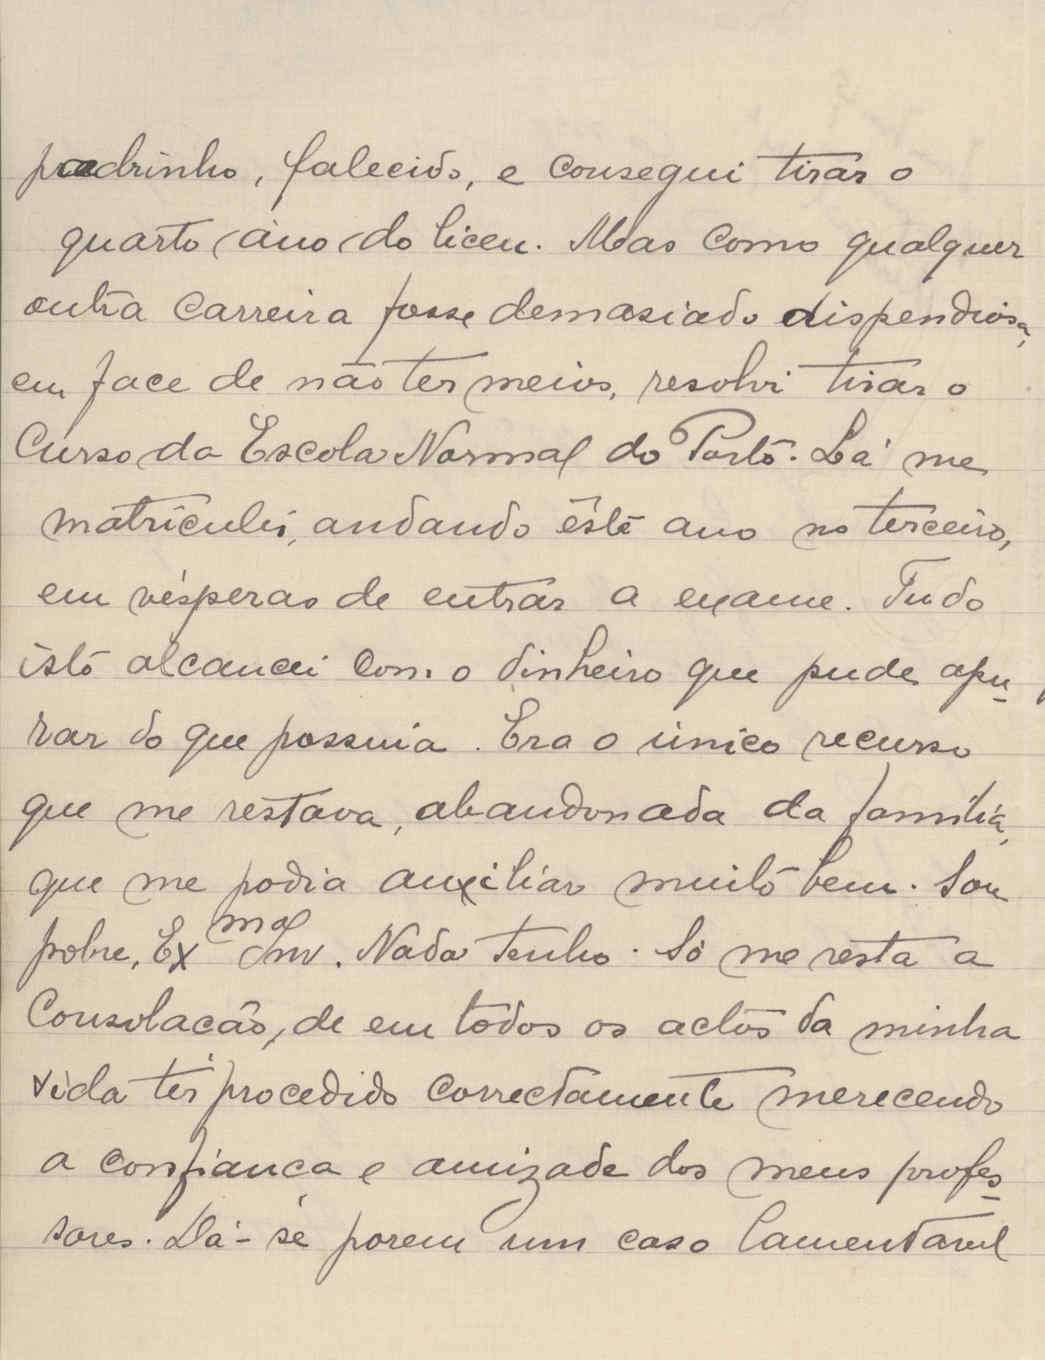 padrinho, falecido, e consegui tirar o
quarto ano do liceu. Mas como qualquer
outra carreira fosse demasiado dispendiosa,
em face de não ter meios, resolvi tirar o
Curso da Escola Normal do Porto. Lá me
matriculei, andando êste ano no terceiro,
em vésperas de entrar a exame. Tudo
isto alcancei com o dinheiro que pude apu-
rar do que possuia. Era o único recurso
que me restava, abandonada da família,
que me podia auxiliar muito bem. Sou
pobre, Exmo Snr. Nada tenho. Só me resta a
Consolacão, de em todos os actos da minha
vida ter procedido correctamente merecendo
a confianca e amizade dos meus profes-
sores. Dá-se porem um caso lamentavel